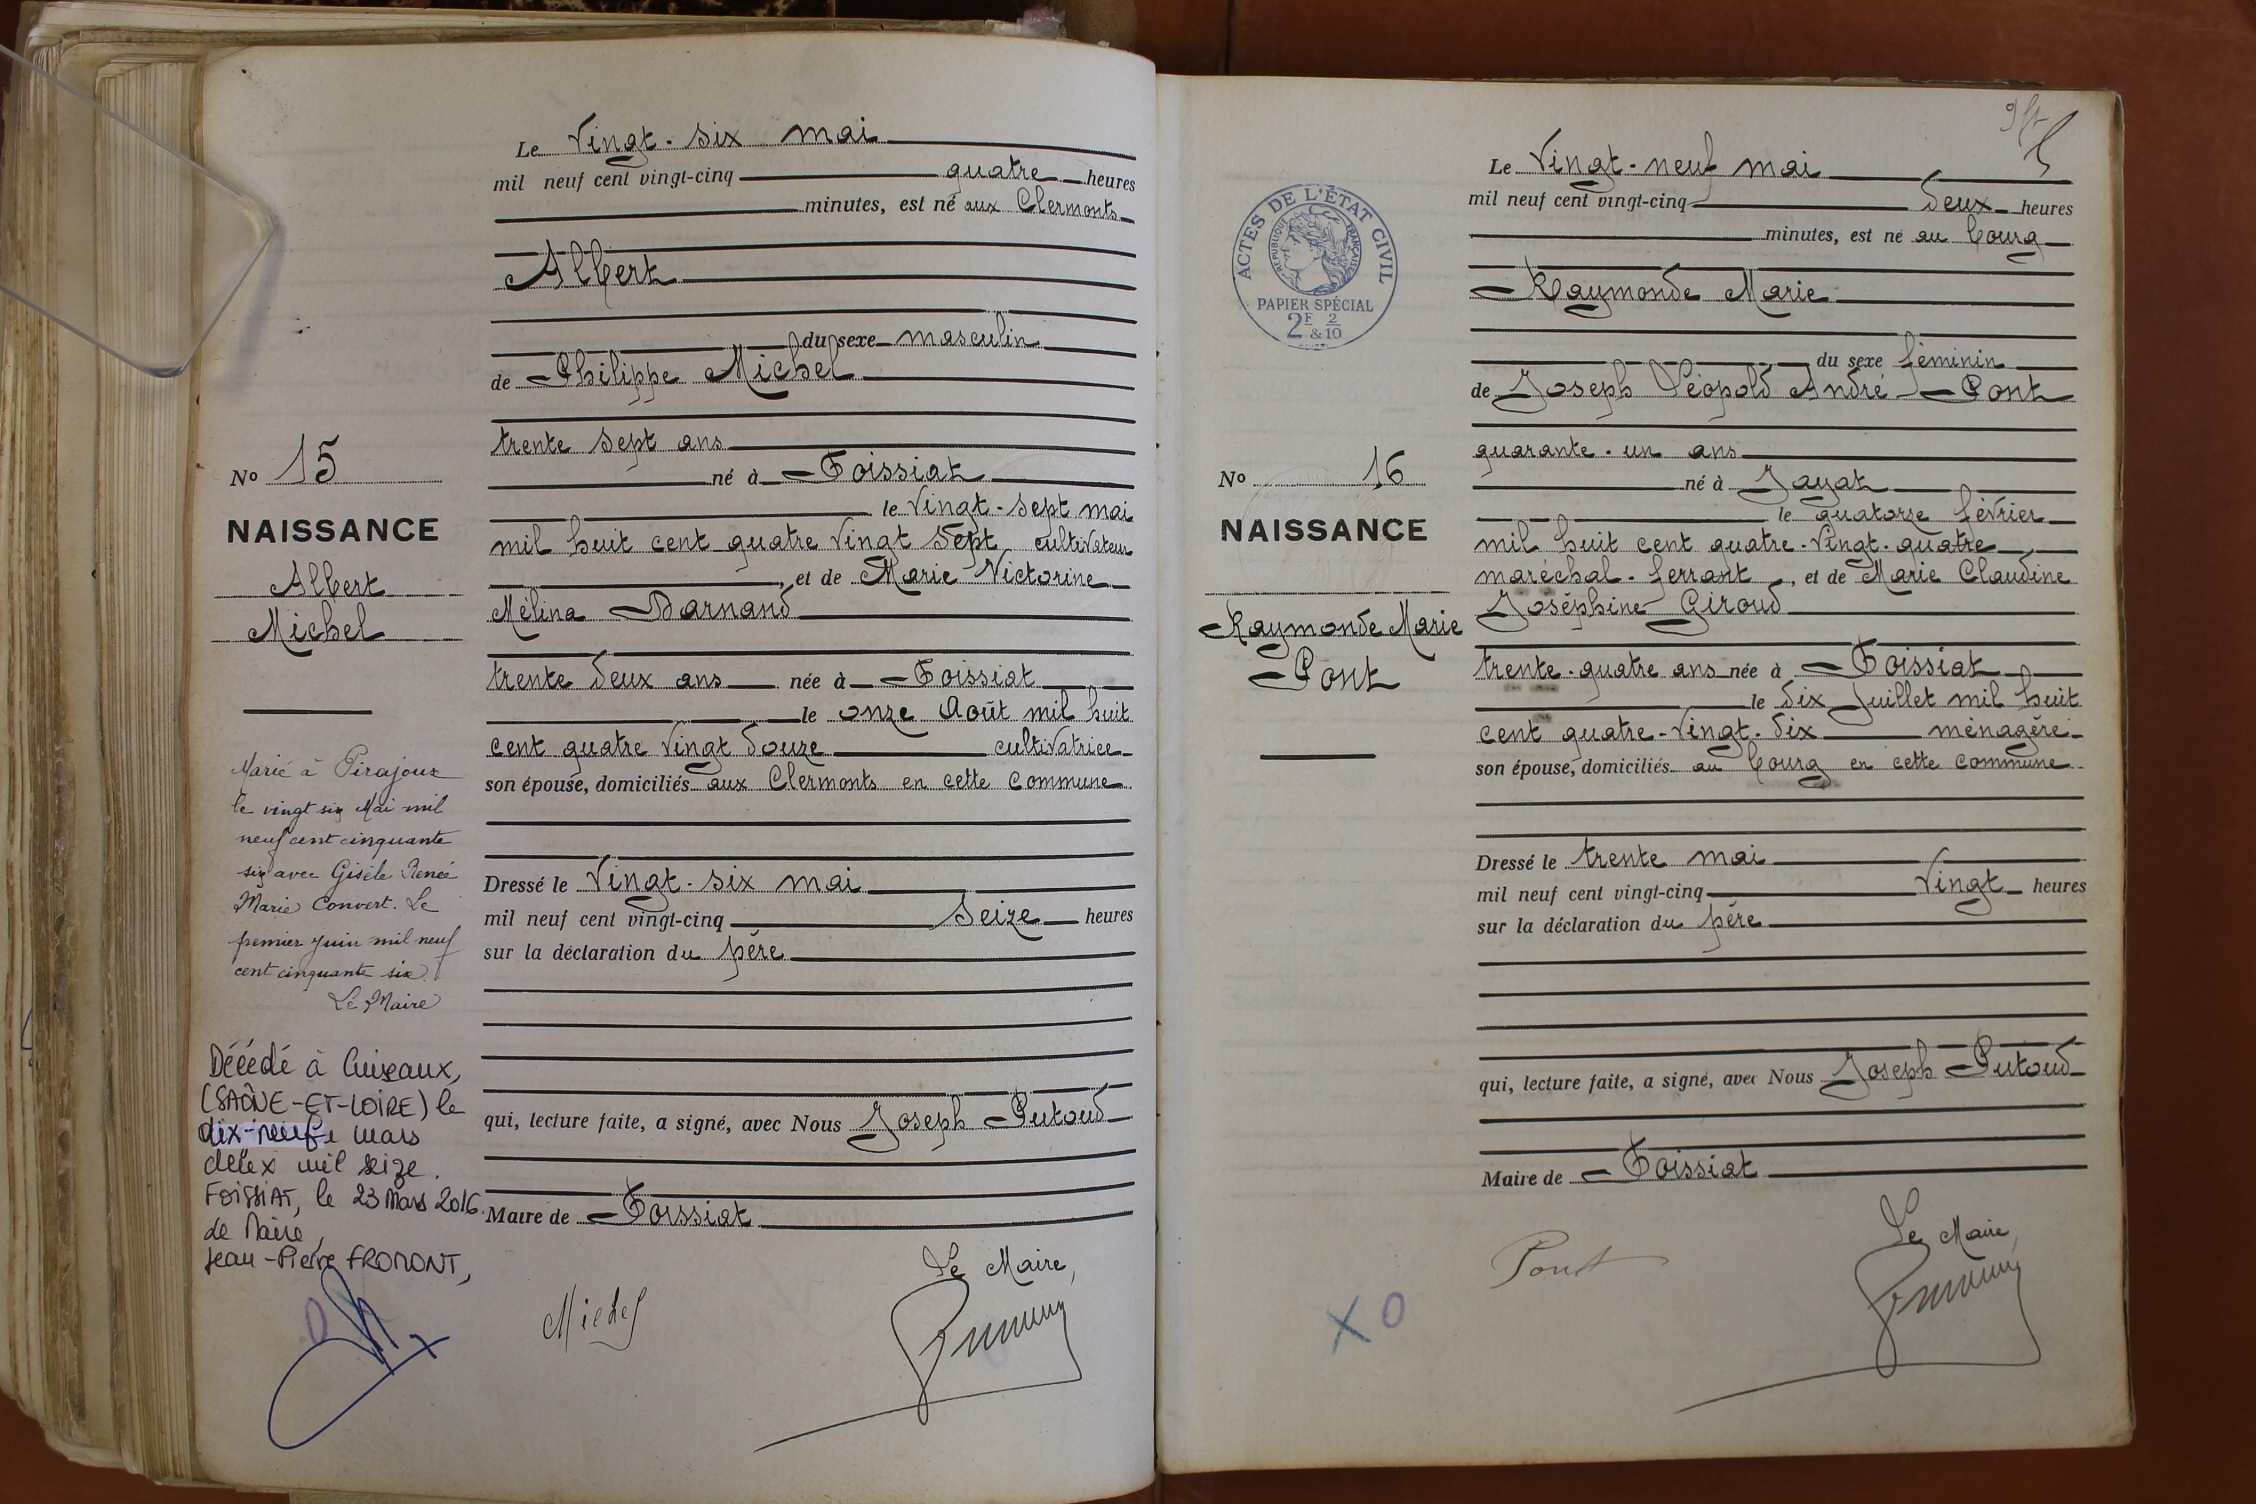 Le Vingt-six mai
mil neuf cent vingt-cinq quatre heures
minutes, est né aux Clermonts
Albert
du sexe masculin
de Philippe Michel
trente sept ans
né à Foissiat
le Vingt-sept mai
mil huit cent quatre Vingt Sept cultivateur
, et de Marie Victorine
Mélina Barnand
trente deux ans née à Foissiat
le onze Août mil huit
cent quatre Vingt douze cultivatrice
son épouse, domiciliés aux Clermonts en cette commune
Dressé le Vingt-six mai
mil neuf cent vingt-cinq Seize heures
sur la déclaration du père
qui, lecture faite, a signé, avec Nous Joseph Putoud
Maire de Foissiat
Le Maire,
Michel
No 15
NAISSANCE
Albert
Michel
Marié à Pirajoux
le vingt six Mai mil
neuf cent cinquante
six avec Gisèle Renée
Marie Convert. Le
premier Juin mil neuf
cent cinquante six.
Le Maire
Décédé à Cuiseaux,
(SAÔNE-ET-LOIRE) le
dix-neuf mars
deux mil seize.
FOISSIAT, le 23 Mars 2016.
Le Maire,
Jean-Pierre FROMONT,
Le Vingt-neuf mai
mil neuf cent vingt-cinq deux heures
minutes, est né au bourg
Raymonde Marie
du sexe féminin
de Joseph Léopold André Pont
quarante-un ans
né à Jayat
le quatorze février
mil huit cent quatre-Vingt-quatre
maréchal-ferrant, et de Marie Claudine
Joséphine Giroud
trente-quatre ans née à Foissiat
le dix Juillet mil huit
cent quatre-Vingt-dix ménagère
son épouse, domiciliés au bourg en cette commune
Dressé le trente mai
mil neuf cent vingt-cinq Vingt heures
sur la déclaration du père
qui, lecture faite, a signé, avec Nous Joseph Putoud
Maire de Foissiat
Le Maire,
Pont
X O
ACTES DE L'ÉTAT CIVIL
RÉPUBLIQUE FRANÇAISE
PAPIER SPÉCIAL
2F & 2/10
No 16
NAISSANCE
Raymonde Marie
Pont